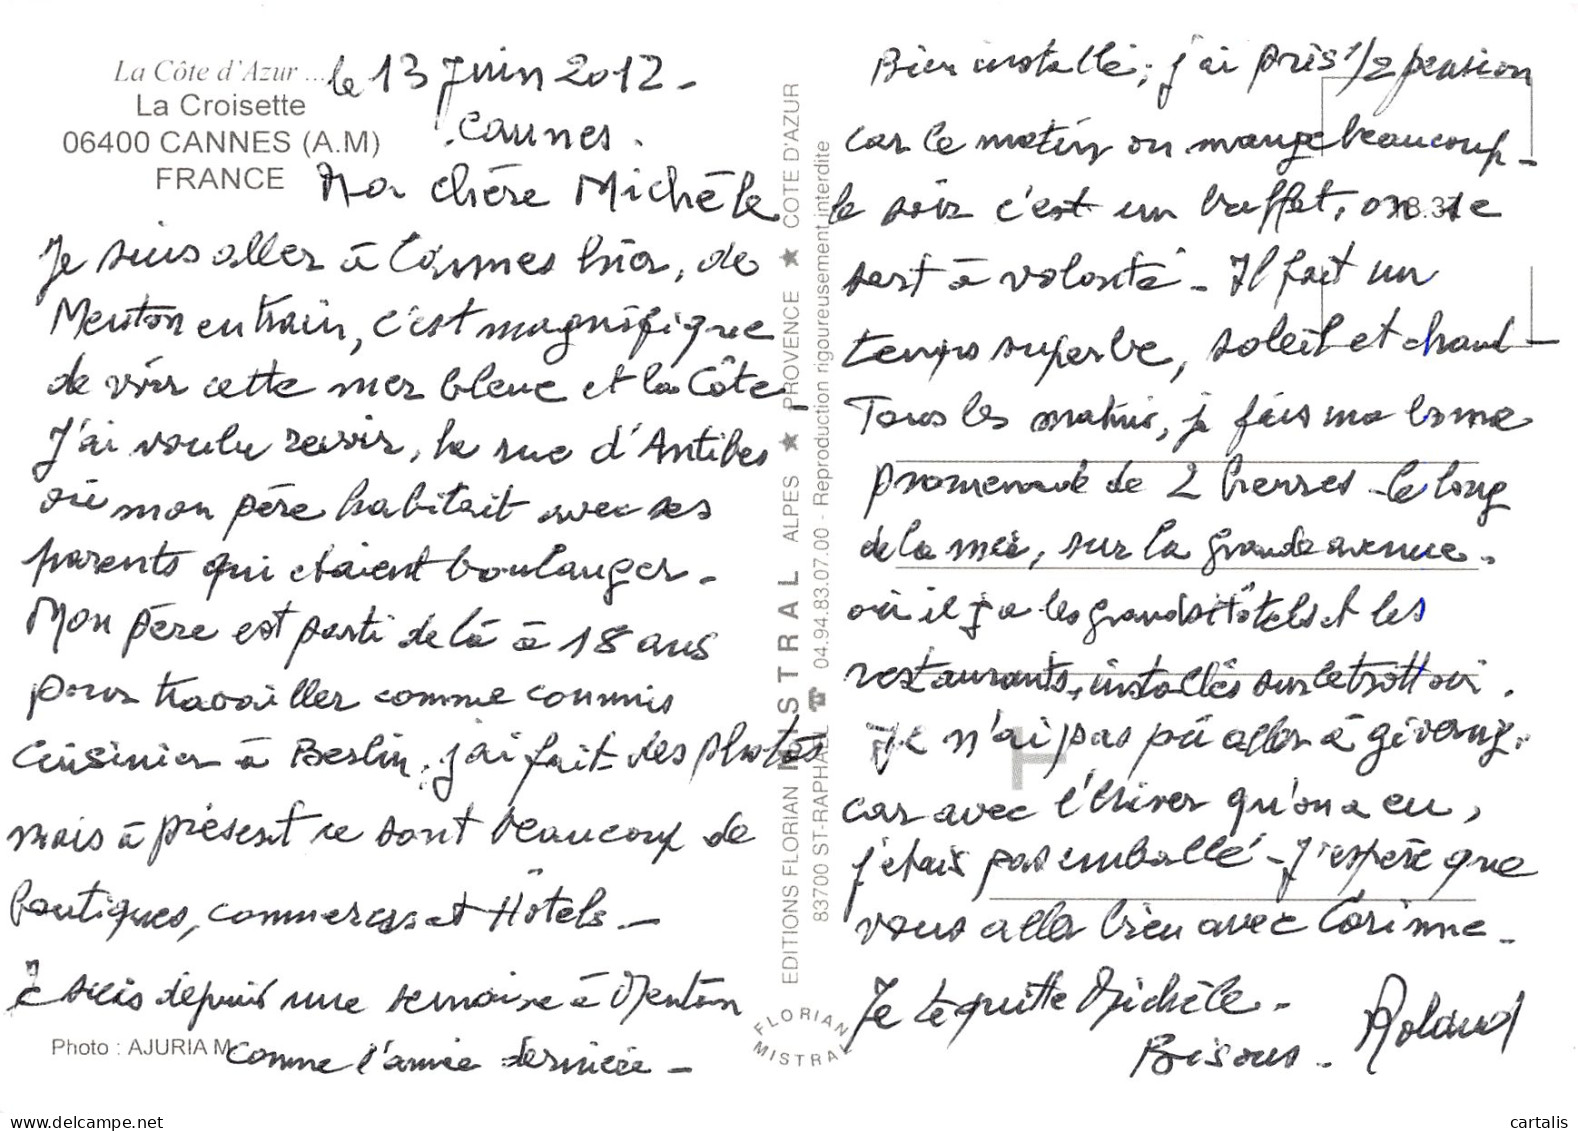 La Côte d'Azur ...
La Croisette
06400 CANNES (A.M)
FRANCE
le 13 Juin 2012 -
Cannes.
Ma chère Michèle
Je suis aller à Cannes hier, de
Menton en train, c'est magnifique
de voir cette mer bleue et la Côte -
J'ai voulu revoir, la rue d'Antibes
où mon père habitait avec ses
parents qui étaient boulanger -
Mon père est parti de là à 18 ans
pour travailler comme commis
Cuisinier à Berlin. j'ai fait des photos
mais à présent ce sont beaucoup de
boutiques, commerces et Hôtels -
Je suis depuis une semaine à Menton
comme l'année dernière -
Photo : AJURIA M.
EDITIONS FLORIAN MISTRAL ALPES ★ PROVENCE ★ COTE D'AZUR
83700 ST-RAPHAEL ☎ 04.94.83.07.00 - Reproduction rigoureusement interdite
FLORIAN
MISTRAL
Bien installé, j'ai pris 1/2 pension
car le matin on mange beaucoup -
le soir c'est un buffet, on se
sert à volonté - Il fait un
temps superbe, soleil et chaud -
Tous les matins, je fais ma longue
promenade de 2 heures le long
de la mer, sur la grande avenue.
où il y a les grands Hôtels et les
restaurants, installés sur le trottoir.
Je n'ai pas pu aller à giverny,
car avec l'hiver qu'on a eu,
j'étais pas emballé - J'espère que
vous allez bien avec Corinne -
Je te quitte Michèle -
Bisous - Roland
cartalis
www.delcampe.net